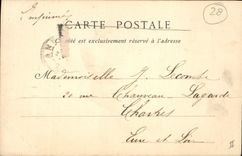 Imprimés
28
CARTE POSTALE
côté est exclusivement réservé à l'adresse
Mademoiselle J. Lecomte
20 rue Chauveau Lagarde
Chartres
Eure et Loir